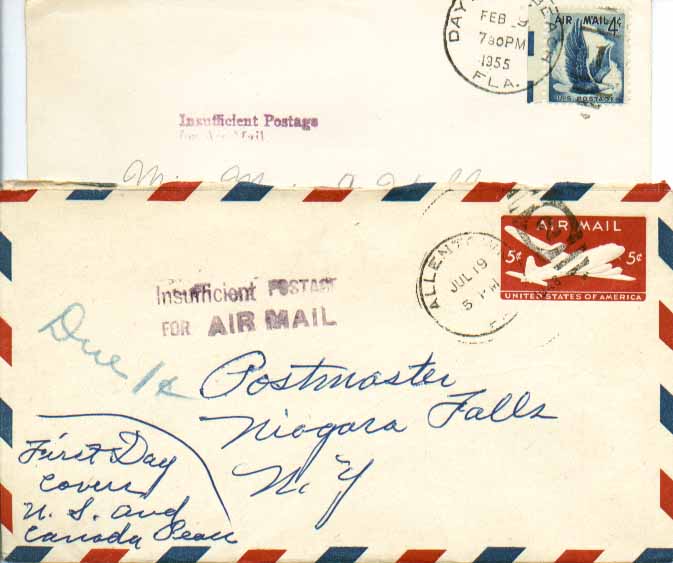 DAY
FEB 9
7 30 PM
1955
FLA.
AIR MAIL 4¢
U.S. POSTAGE
Insufficient Postage
for Air Mail
ALLENTOWN
JUL 19
5 PM
AIR MAIL
5¢ 5¢
UNITED STATES OF AMERICA
Insufficient POSTAGE
FOR AIR MAIL
Due 1¢
Postmaster
Niagara Falls
N. Y
First Day
Covers
U. S. and
Canada Peace